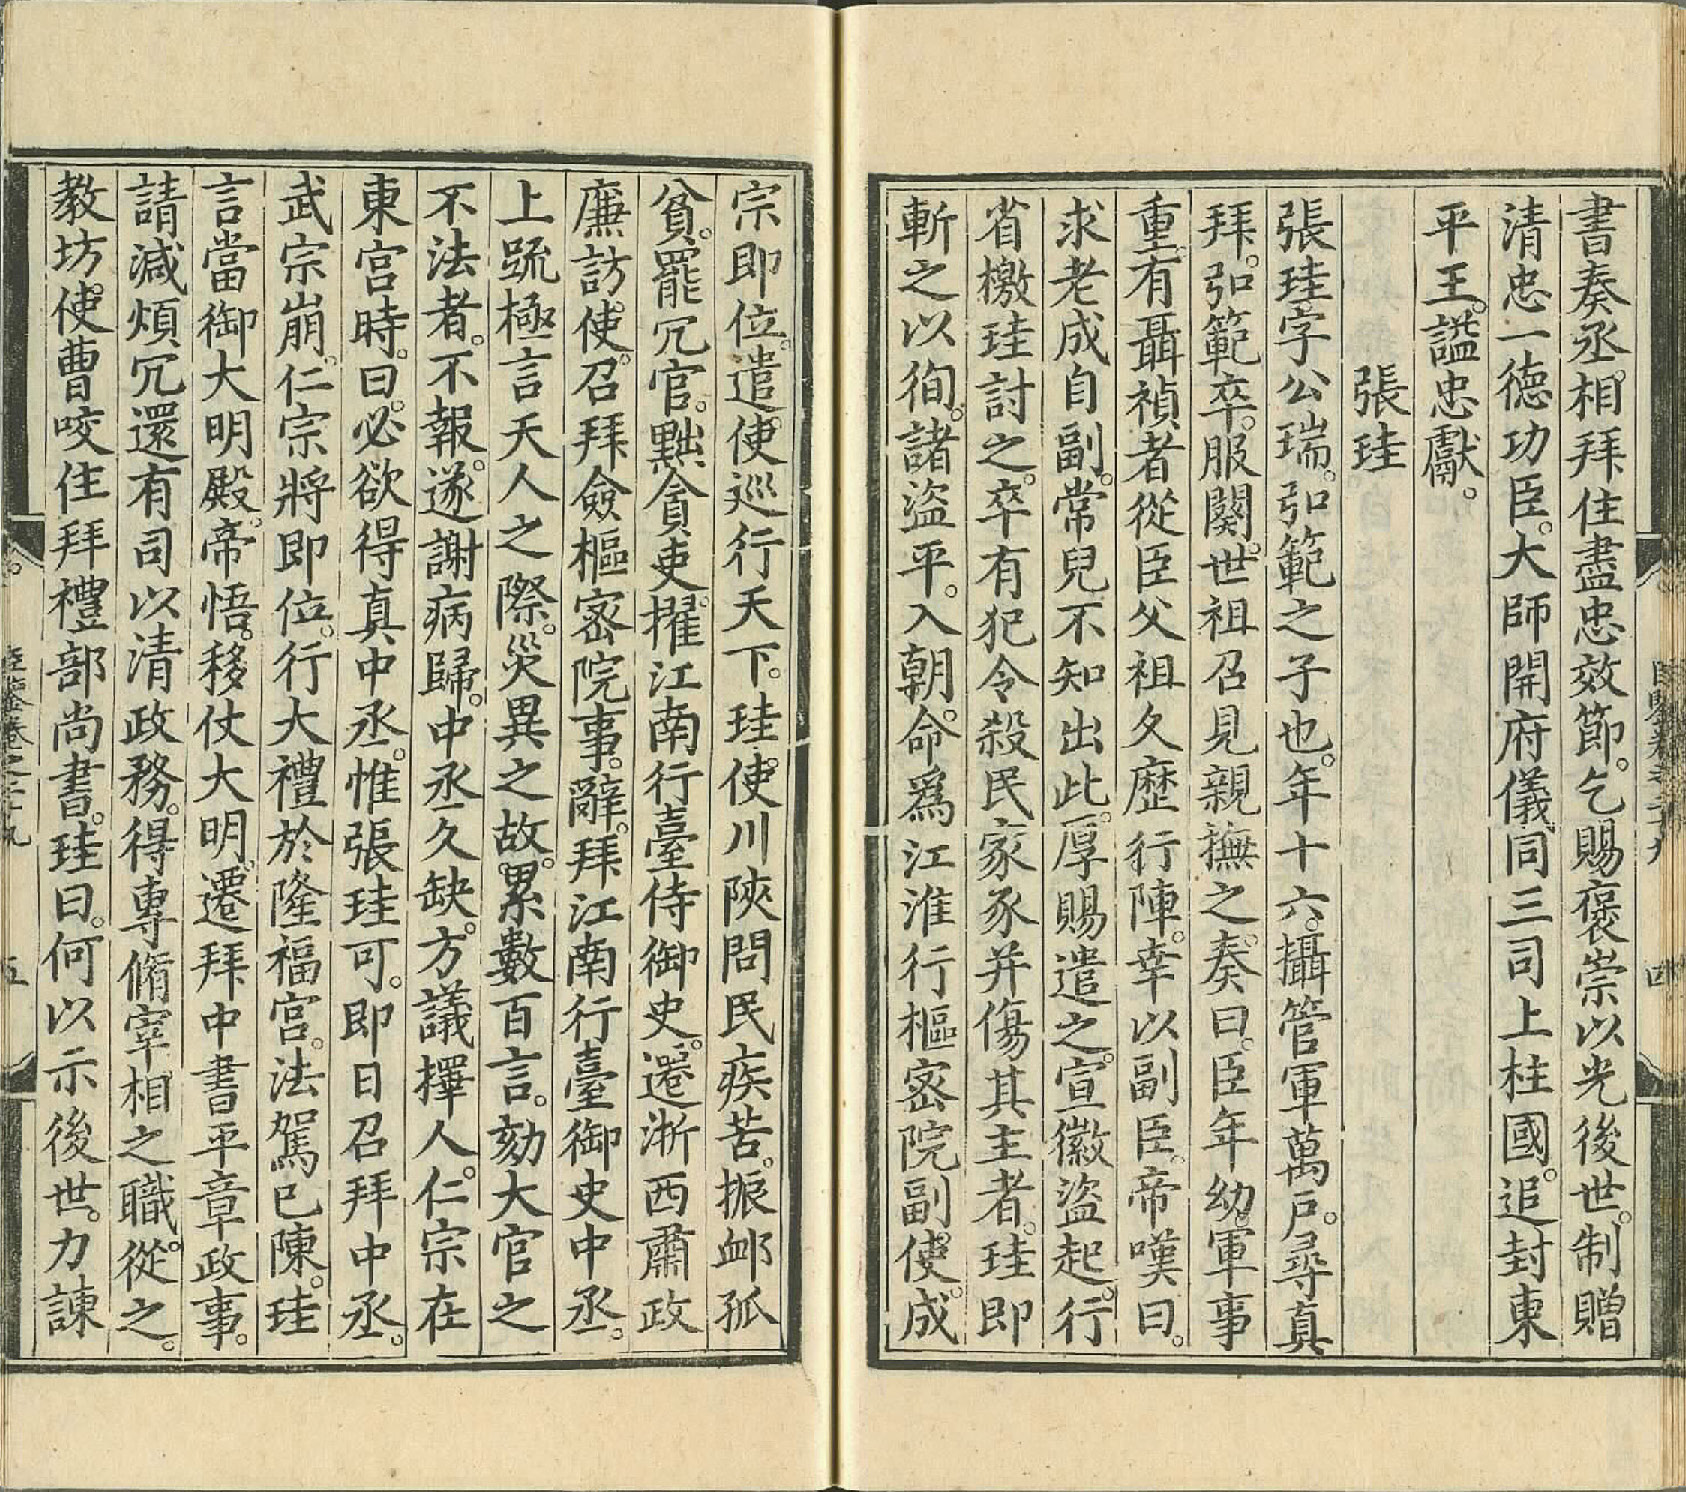 書奏丞相拜住盡忠效節乞賜褒崇以光後世制贈
清忠一德功臣大師開府儀同三司上柱國追封東
平王謚忠獻
張珪
張珪字公瑞弘範之子也年十六攝管軍萬戶尋真
拜弘範卒服闋世祖召見親撫之奏曰臣年幼軍事
重有聶禎者從臣父祖久歷行陣幸以副臣帝嘆曰
求老成自副常兒不知出此厚賜遣之宣徽盜起行
省檄珪討之卒有犯令殺民家豕并傷其主者珪即
斬之以徇諸盜平入朝命爲江淮行樞密院副使成
宗即位遣使巡行天下珪使川陝問民疾苦振卹孤
貧罷冗官黜貪吏擢江南行臺侍御史遷浙西肅政
廉訪使召拜僉樞密院事辭拜江南行臺御史中丞
上疏極言天人之際災異之故累數百言劾大官之
不法者不報遂謝病歸中丞久缺方議擇人仁宗在
東宮時曰必欲得真中丞惟張珪可即日召拜中丞
武宗崩仁宗將即位行大禮於隆福宮法駕已陳珪
言當御大明殿帝悟移仗大明遷拜中書平章政事
請減煩冗還有司以清政務得專脩宰相之職從之
教坊使曹咬住拜禮部尚書珪曰何以示後世力諫
五